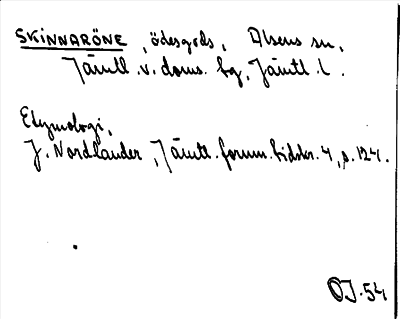 SKINNARÖNE, ödesgds, Alsens sn,
Jämtl. v. doms. hg, Jämtl. l.
Etymologi,
J. Nordlander, Jämtl. fornm. tidskr. 4, s. 124.
OJ. 54